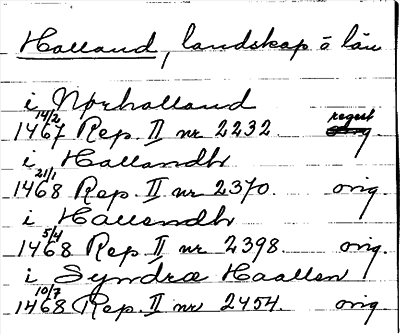 Halland, landskap o län
i Nørhalland
14/2 regest
1467 Rep. II nr 2232.
i Hallandh
21/1
1468 Rep. II nr 2370. orig.
i Hallendh
5/4
1468 Rep. II nr 2398. orig.
i Syndræ Haallen
10/7
1468 Rep. II nr 2454. orig.